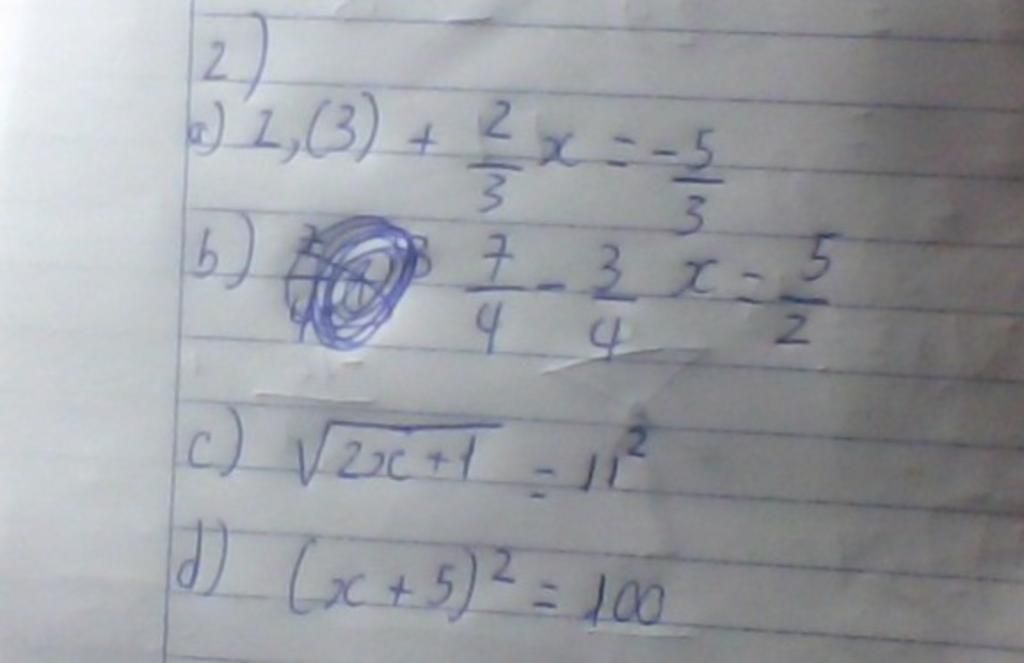 2)
a) 1,(3) + 2/3 x = -5/3
b) 7/4 - 3/4 x = 5/2
c) √(2x+1) = 11²
d) (x+5)² = 100